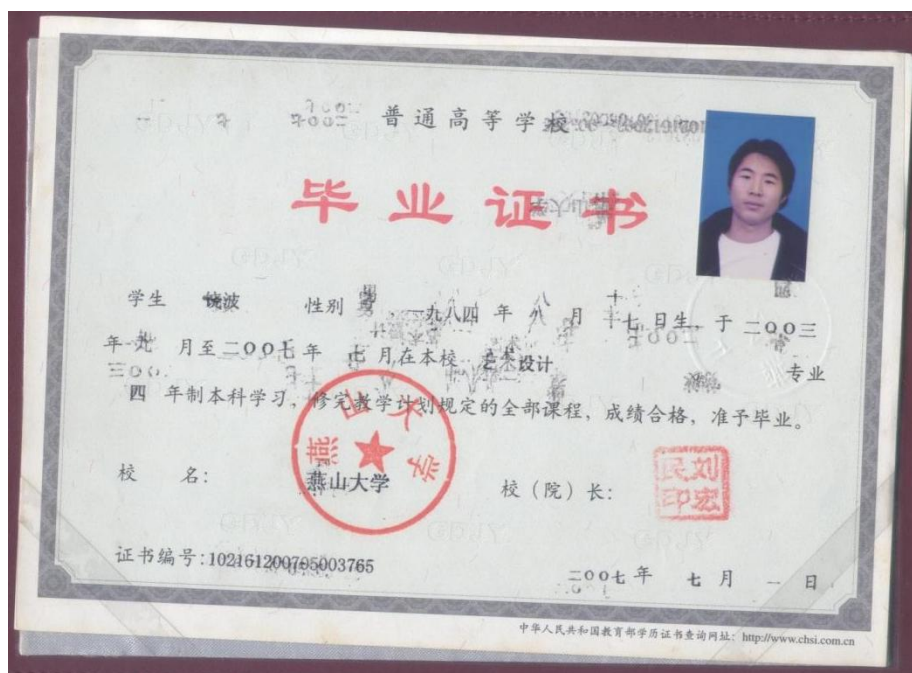 普通高等学校
毕业证书
学生 饶波 性别 男 一九八四 年 八 月 十七 日生，于 二〇〇三
年 九 月至 二〇〇七 年 七 月在本校 艺术设计 专业
四 年制本科学习，修完教学计划规定的全部课程，成绩合格，准予毕业。
校 名： 燕山大学 校（院）长： 刘宏民印
证书编号：102161200705003765
二〇〇七 年 七 月 一 日
中华人民共和国教育部学历证书查询网址：http://www.chsi.com.cn